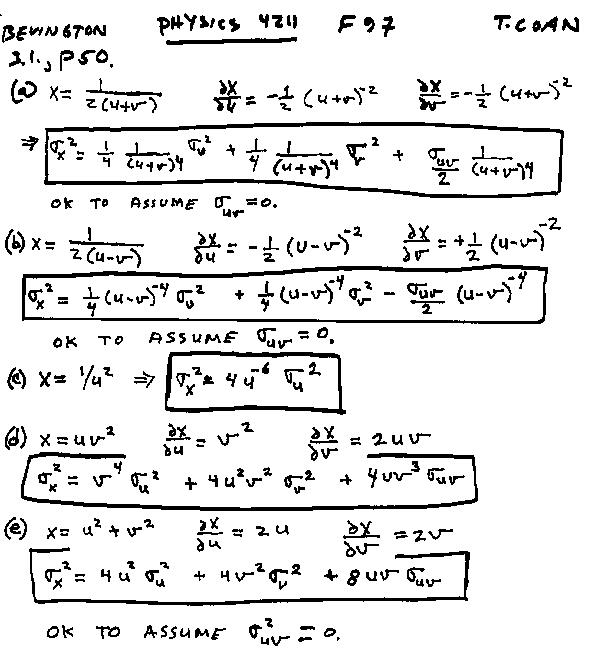 BEVINGTON PHYSICS 4211 F97 T. COAN
3.1., p50.
(a) x = 1/2(u+v) ∂x/∂u = -1/2 (u+v)^-2 ∂x/∂v = -1/2 (u+v)^-2
⇒ σx² = 1/4 1/(u+v)⁴ σu² + 1/4 1/(u+v)⁴ σv² + σuv/2 1/(u+v)⁴
OK TO ASSUME σuv = 0.
(b) x = 1/2(u-v) ∂x/∂u = -1/2 (u-v)^-2 ∂x/∂v = +1/2 (u-v)^-2
σx² = 1/4 (u-v)^-4 σu² + 1/4 (u-v)^-4 σv² - σuv/2 (u-v)^-4
OK TO ASSUME σuv = 0.
(c) x = 1/u² ⇒ σx² = 4u^-6 σu²
(d) x = uv² ∂x/∂u = v² ∂x/∂v = 2uv
σx² = v⁴ σu² + 4u²v² σv² + 4uv³ σuv
(e) x = u² + v² ∂x/∂u = 2u ∂x/∂v = 2v
σx² = 4u² σu² + 4v² σv² + 8uv σuv
OK TO ASSUME σuv² = 0.